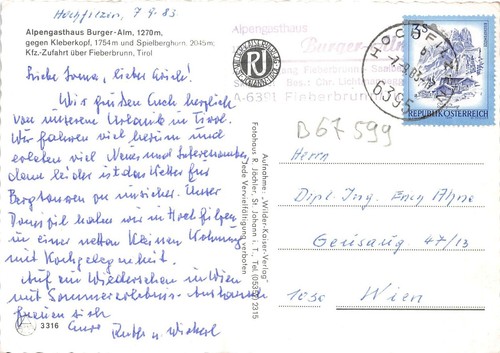 Hochfilzen, 7.9.83
Alpengasthaus Burger-Alm, 1270m,
gegen Kleberkopf, 1754m und Spielberghorn, 2045m;
Kfz-Zufahrt über Fieberbrunn, Tirol
Liebe
Wir grüßen Euch herzlich
von unserem Urlaub in Tirol.
Wir fahren viel herum und
erleben viel Neues und Interessantes,
denn leider ist das Wetter für
Bergtouren zu unsicher. Unser
haben wir in Hochfilzen
in einer netten kleinen Wohnung
mit Kochgelegenheit.
Auf ein Wiedersehen in Wien
mit Sommererlebnis-Austausch
freuen sich
Eure Ruth u.
3316
RJ
Aufnahme: „Wilder-Kaiser-Verlag"
Fotohaus R. Jöchler, St. Johann i. T., Tel. (05352) 2315
Jede Vervielfältigung verboten
Alpengasthaus
Burger-Alm
A-6391 Fieberbrunn
HOCHFILZEN
6395
REPUBLIK ÖSTERREICH
B67599
Herrn
Dipl. Ing.
47/13
1030 Wien